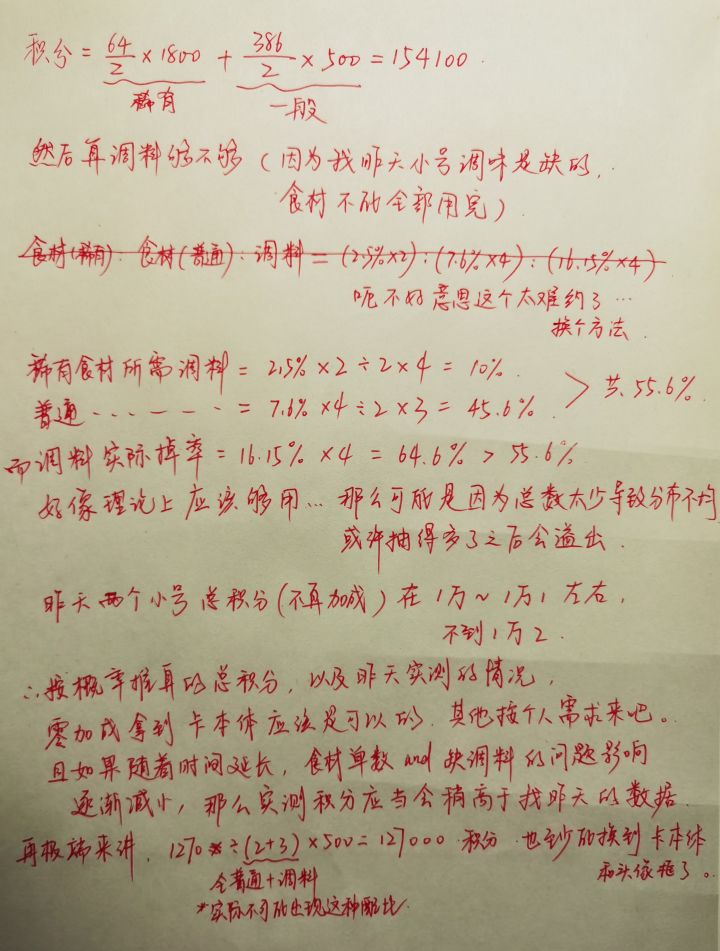 积分 = 64/2 × 1800 + 386/2 × 500 = 154100.
稀有 一般
然后算调料够不够（因为我昨天小号调味是缺的,
食材不能全部用完）
食材(稀有)：食材(普通)：调料 = (2.5%×2)：(7.6%×4)：(16.15%×4)
呃不好意思这个太难约了…
换个方法.
稀有食材所需调料 = 2.5% × 2 ÷ 2 × 4 = 10%.
普通………… = 7.6% × 4 ÷ 2 × 3 = 45.6% > 共55.6%.
而调料实际掉率 = 16.15% × 4 = 64.6% > 55.6%
好像理论上应该够用… 那么可能是因为总数太少导致分布不均
或许抽得多了之后会溢出.
昨天两个小号总积分(不算加成)在1万~1万1左右,
不到1万2.
∴按概率推算的总积分, 以及昨天实测的情况,
零加成拿到卡本体应该是可以的. 其他按个人需求来吧。
且如果随着时间延长, 食材单数 and 缺调料的问题影响
逐渐减少, 那么实测积分应当会稍高于我昨天的数据.
再极端来讲, 1270 * ÷ (2+3) × 500 = 127000 积分. 也至少能换到卡本体
和头像框了。
全普通+调料
*实际不可能出现这种配比.